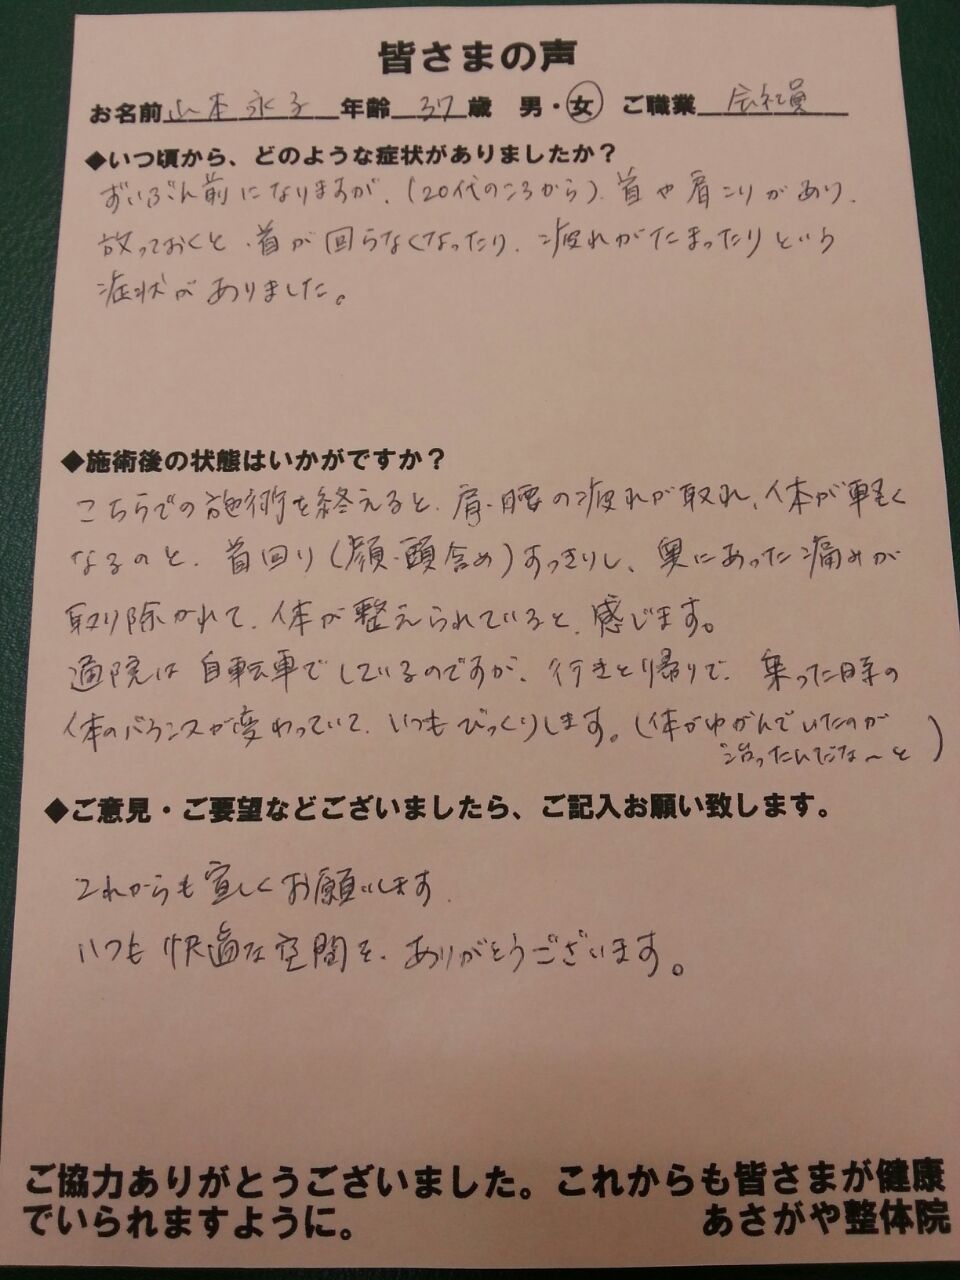 皆さまの声
お名前 山本永子 年齢 37 歳 男・女 ご職業 会社員
◆いつ頃から、どのような症状がありましたか？
ずいぶん前になりますが、(20代のころから)、首や肩こりがあり、
放っておくと、首が回らなくなったり、疲れがたまったりという
症状がありました。
◆施術後の状態はいかがですか？
こちらでの施術を終えると、肩・腰の疲れが取れ、体が軽く
なるのと、首回り(顔・頭含め)すっきりし、奥にあった痛みが
取り除かれて、体が整えられていると、感じます。
通院は自転車でしているのですが、行きと帰りで、乗った時の
体のバランスが変わっていて、いつもびっくりします。(体がゆがんでいたのが
治ったんだな～と)
◆ご意見・ご要望などございましたら、ご記入お願い致します。
これからも宜しくお願いします
いつも快適な空間を、ありがとうございます。
ご協力ありがとうございました。これからも皆さまが健康
でいられますように。 あさがや整体院